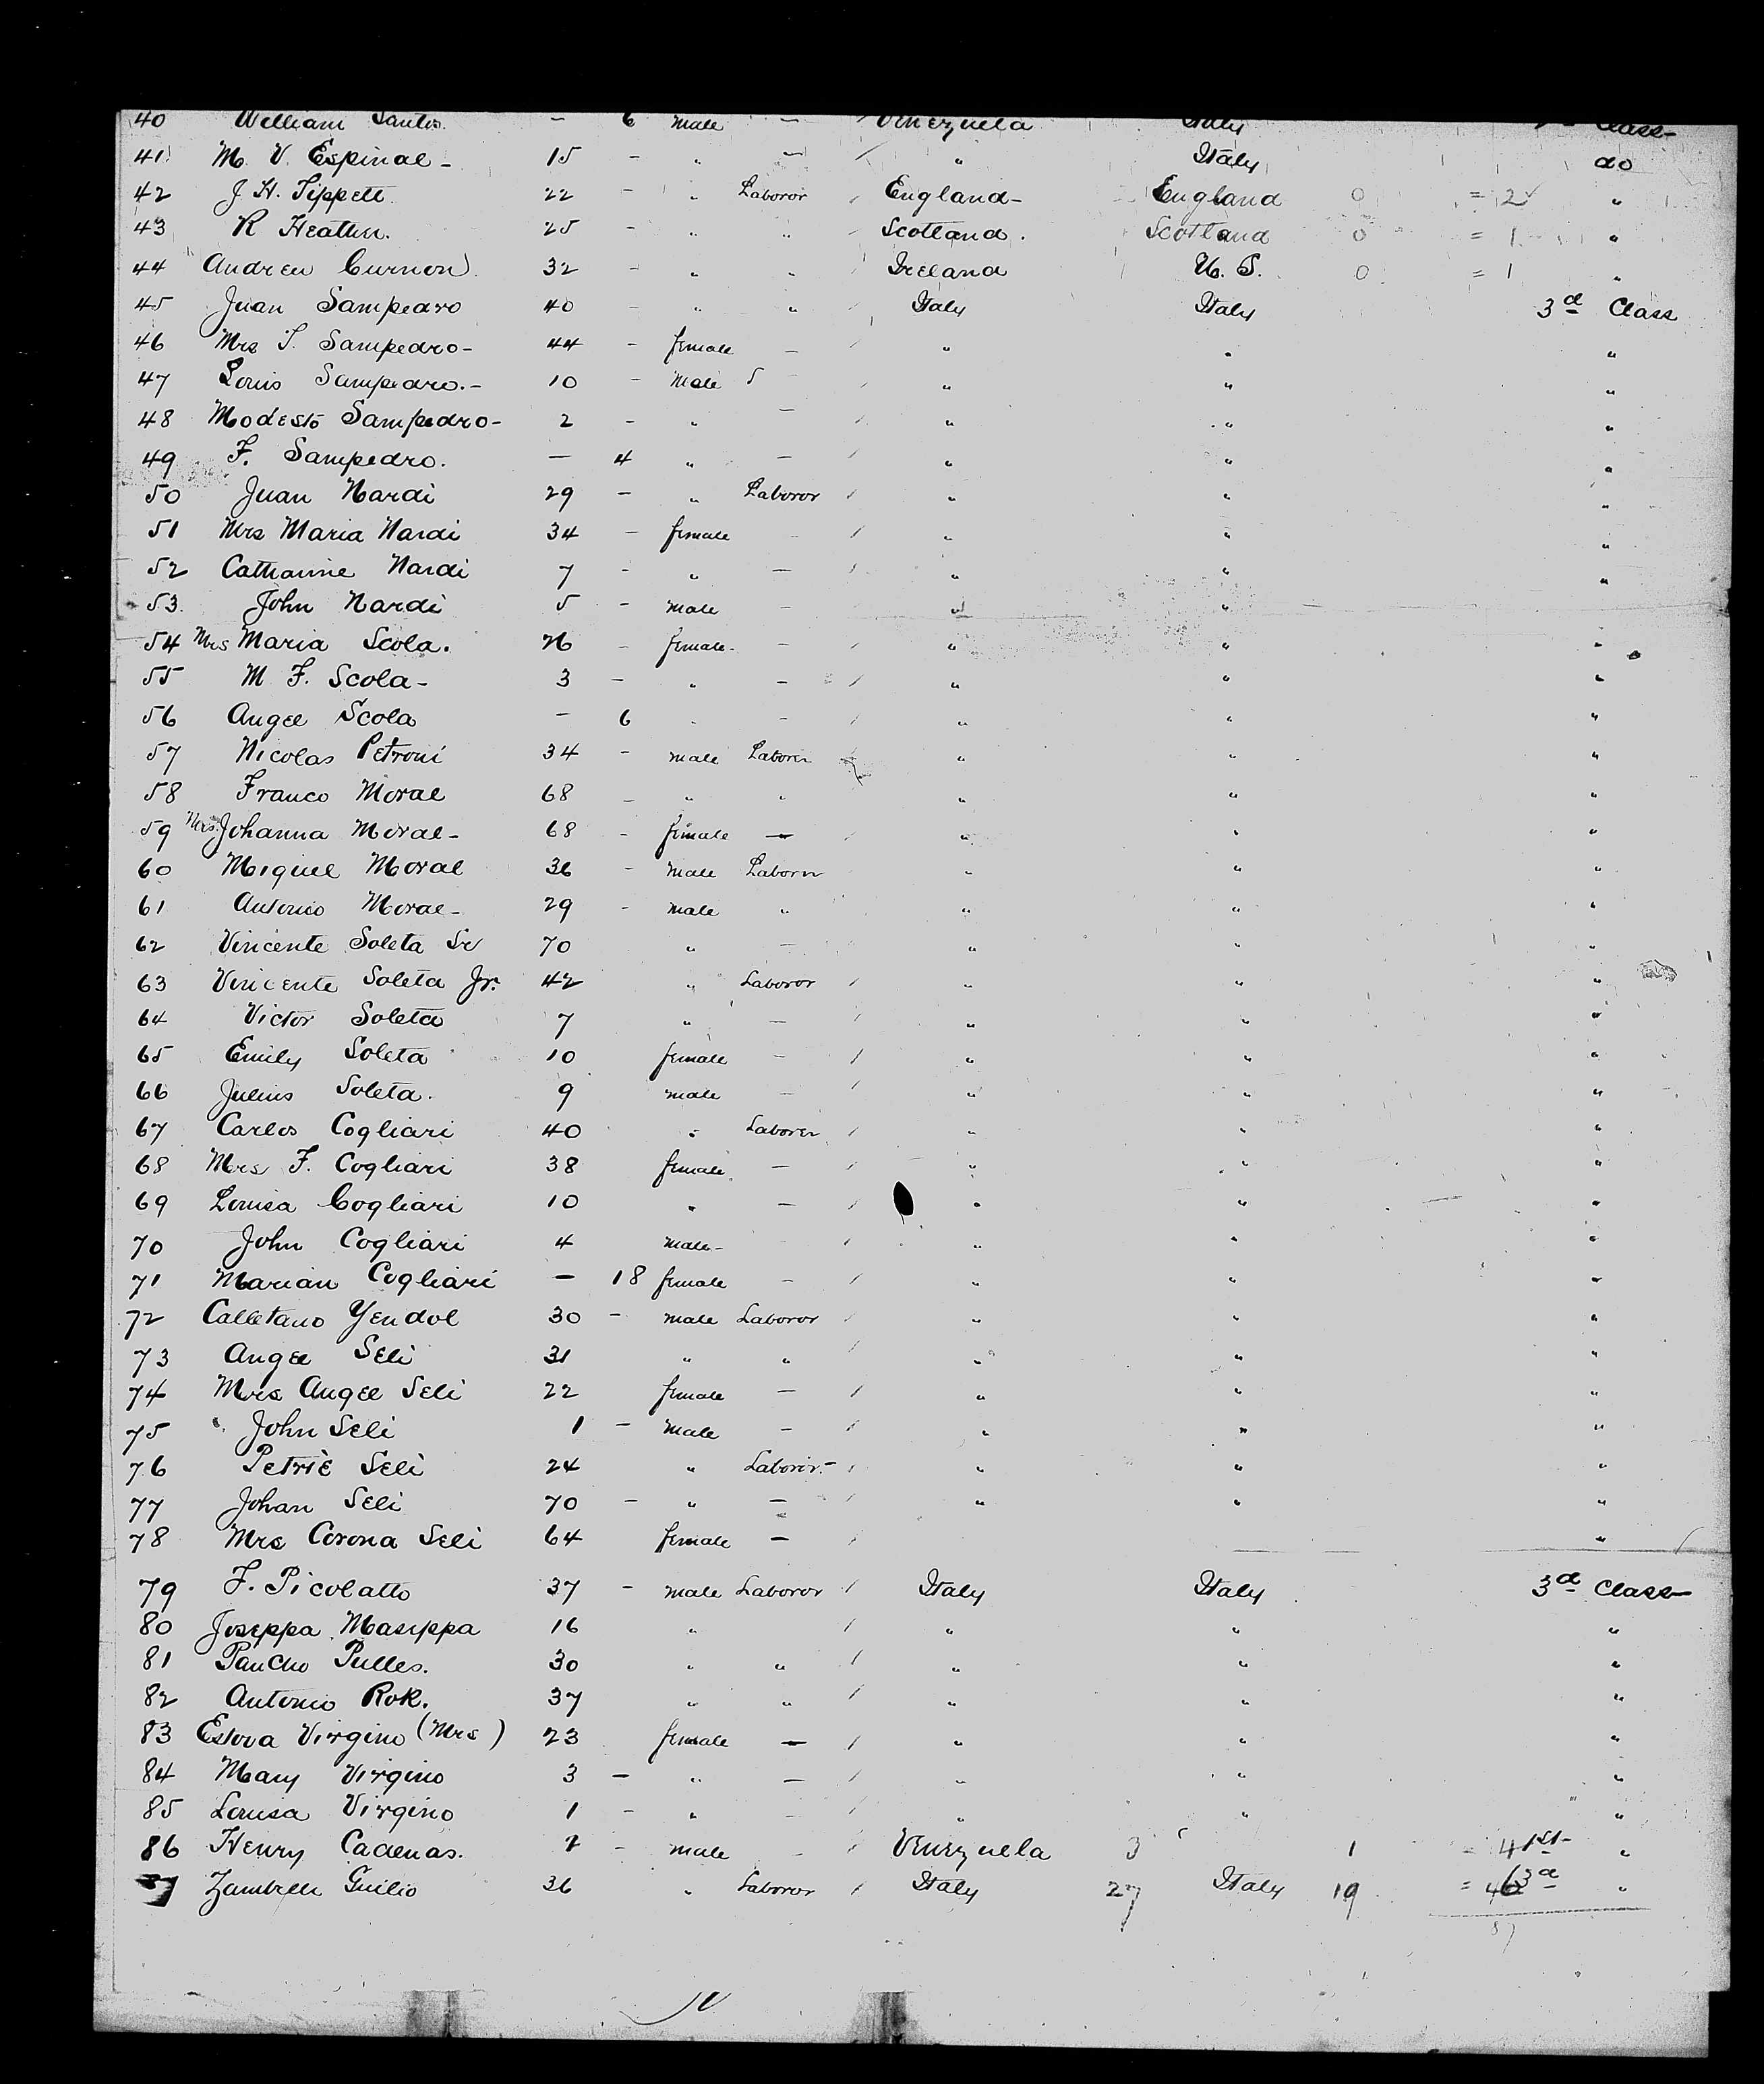 40 William Santos. - 6 male - Venezuela Italy Class-
41 M. V. Espinal - 15 - " - / " Italy do
42 J. H. Tippett. 22 - " Laboror / England - England 0 = 2 "
43 R Heatten. 25 - " " / Scotland. Scotland 0 = 1 "
44 Andrew Curnon 32 - " " / Ireland U. S. 0 = 1 "
45 Juan Sampedro 40 - " " / Italy Italy 3d Class
46 Mrs S. Sampedro - 44 - female - / " " "
47 Louis Sampedro. - 10 - male - / " " "
48 Modesto Sampedro - 2 - " - / " " "
49 F. Sampedro. - 4 " - / " " "
50 Juan Nardi 29 - " Laboror / " " "
51 Mrs Maria Nardi 34 - female - / " " "
52 Catharine Nardi 7 - " - / " " "
53. John Nardi 5 - male - " " "
54 Mrs Maria Scola. 26 - female - - / " " "
55 M F. Scola - 3 - " - / " " "
56 Angel Scola - 6 " - / " " "
57 Nicolas Petroni 34 - male Laborer / " " "
58 Franco Moral 68 - " " " " "
59 Mrs. Johanna Moral - 68 - female - / " " "
60 Miquel Moral 36 - male Laborer " " "
61 Antonio Moral - 29 - male " " " "
62 Vincente Soleta Sr 70 " - " " "
63 Vincente Soleta Jr. 42 " Laboror / " " "
64 Victor Soleta 7 " - / " " "
65 Emily Soleta 10 female - / " " "
66 Julius Soleta. 9 male - / " " "
67 Carlos Cogliari 40 " Laborer / " " "
68 Mrs F. Cogliari 38 female - / " " "
69 Louisa Cogliari 10 " - / " " "
70 John Cogliari 4 male - / " " "
71 Marian Cogliari - 18 female - / " " "
72 Calletano Yendol 30 - male Laboror / " " "
73 Angel Seli 31 " " / " " "
74 Mrs Angel Seli 22 female - / " " "
75 John Seli 1 - male - / " " "
76 Petrie Seli 24 " Laboror - / " " "
77 Johan Seli 70 - " - / " " "
78 Mrs Corona Seli 64 female - / "
79 F. Picolatto 37 - male Laboror / Italy Italy 3d Class
80 Joseppa Maseppa 16 " / " " "
81 Pancho Pulles. 30 " " / " " "
82 Antonio Rok. 37 " " / " " "
83 Estova Virgino (Mrs) 23 female - / " " "
84 Mary Virgino 3 - " - / " " "
85 Louisa Virgino 1 - " - / " " "
86 Henry Cadenas. 2 - male - / Venezuela 3 1 = 4 1st "
87 Zambelli Guilio 36 " Laboror / Italy 27 Italy 19 = 3d "
87